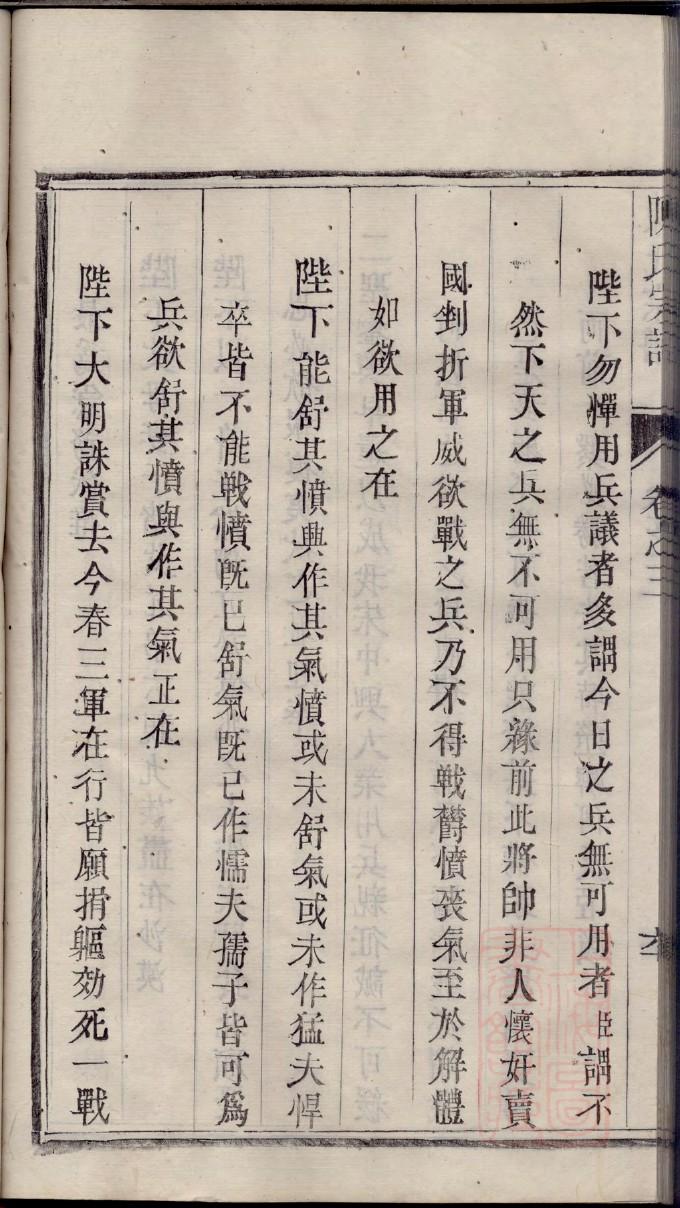 陳氏宗譜
卷之三
陛下勿憚用兵議者多謂今日之兵無可用者臣謂不
然下天之兵無不可用只緣前此將帥非人懷奸賣
國剉折軍威欲戰之兵乃不得戦欝憤丧氣至於解體
如欲用之在
陛下能舒其憤興作其氣憤或未舒氣或未作猛夫悍
卒皆不能戦憤旣已舒氣旣已作懦夫孺子皆可爲
兵欲舒其憤與作其氣正在
陛下大明誅賞去今春三軍在行皆願捐軀効死一戰